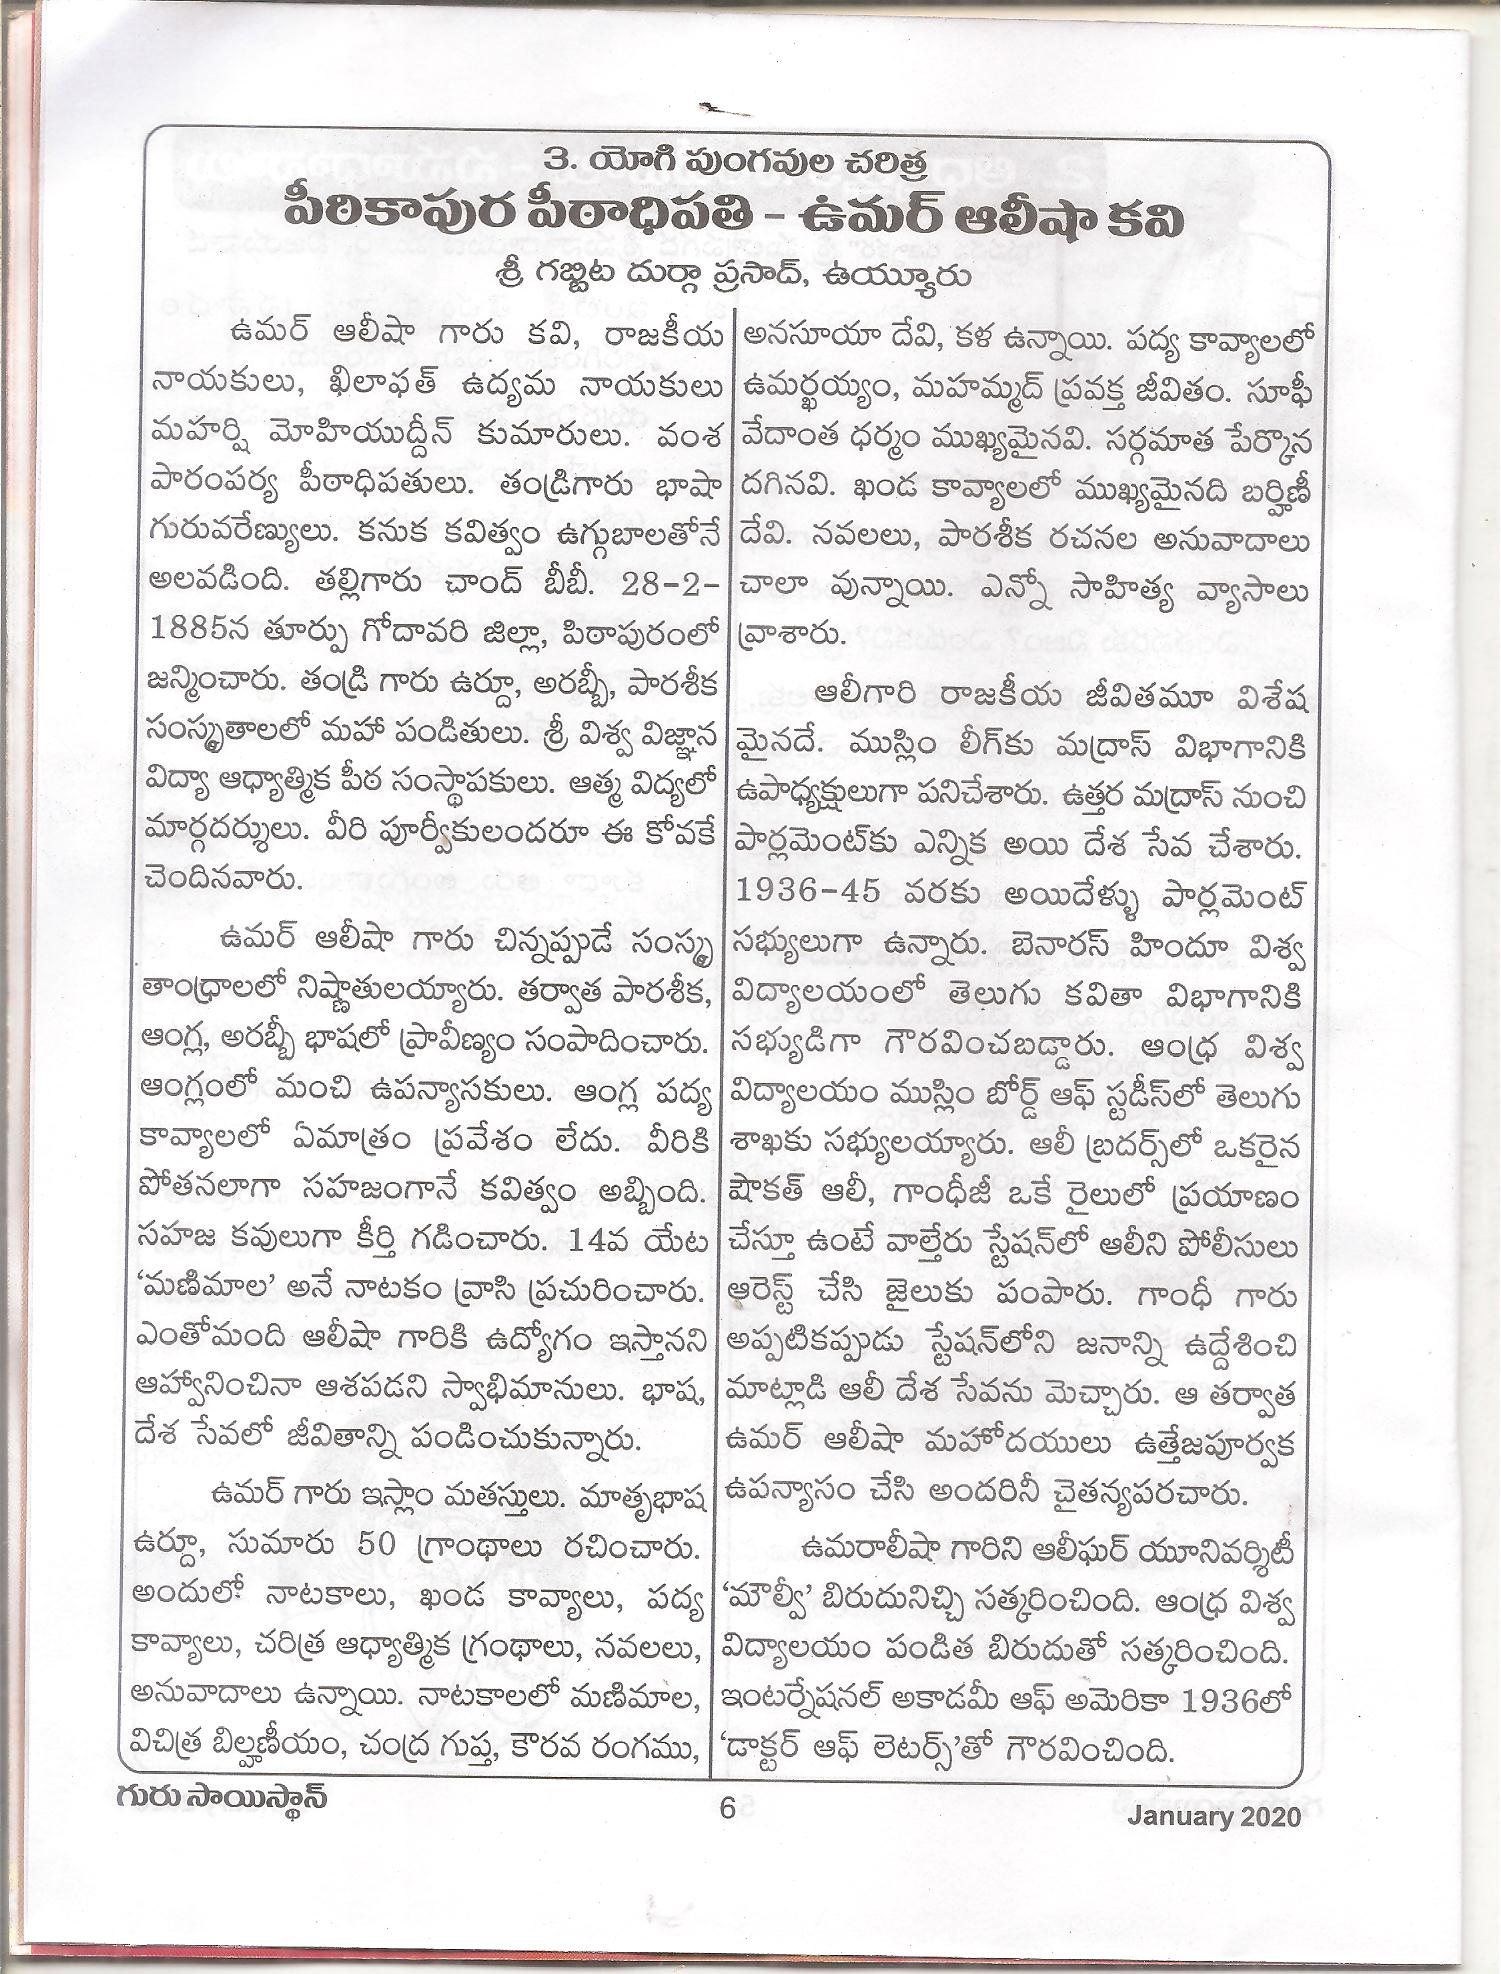 3. యోగి పుంగవుల చరిత్ర
పీఠికాపుర పీఠాధిపతి - ఉమర్ ఆలీషా కవి
శ్రీ గబ్బిట దుర్గా ప్రసాద్, ఉయ్యూరు
ఉమర్ ఆలీషా గారు కవి, రాజకీయ
నాయకులు, ఖిలాఫత్ ఉద్యమ నాయకులు
మహర్షి మోహియుద్దీన్ కుమారులు. వంశ
పారంపర్య పీఠాధిపతులు. తండ్రిగారు భాషా
గురువరేణ్యులు. కనుక కవిత్వం ఉగ్గుబాలతోనే
అలవడింది. తల్లిగారు చాంద్ బీబీ. 28-2-
1885న తూర్పు గోదావరి జిల్లా, పిఠాపురంలో
జన్మించారు. తండ్రి గారు ఉర్దూ, అరబ్బీ, పారశీక
సంస్కృతాలలో మహా పండితులు. శ్రీ విశ్వ విజ్ఞాన
విద్యా ఆధ్యాత్మిక పీఠ సంస్థాపకులు. ఆత్మ విద్యలో
మార్గదర్శులు. వీరి పూర్వీకులందరూ ఈ కోవకే
చెందినవారు.
ఉమర్ ఆలీషా గారు చిన్నప్పుడే సంస్కృ
తాంధ్రాలలో నిష్ణాతులయ్యారు. తర్వాత పారశీక,
ఆంగ్ల, అరబ్బీ భాషలో ప్రావీణ్యం సంపాదించారు.
ఆంగ్లంలో మంచి ఉపన్యాసకులు. ఆంగ్ల పద్య
కావ్యాలలో ఏమాత్రం ప్రవేశం లేదు. వీరికి
పోతనలాగా సహజంగానే కవిత్వం అబ్బింది.
సహజ కవులుగా కీర్తి గడించారు. 14వ యేట
‘మణిమాల’ అనే నాటకం వ్రాసి ప్రచురించారు.
ఎంతోమంది ఆలీషా గారికి ఉద్యోగం ఇస్తానని
ఆహ్వానించినా ఆశపడని స్వాభిమానులు. భాష,
దేశ సేవలో జీవితాన్ని పండించుకున్నారు.
ఉమర్ గారు ఇస్లాం మతస్తులు. మాతృభాష
ఉర్దూ, సుమారు 50 గ్రాంథాలు రచించారు.
అందులో నాటకాలు, ఖండ కావ్యాలు, పద్య
కావ్యాలు, చరిత్ర ఆధ్యాత్మిక గ్రంథాలు, నవలలు,
అనువాదాలు ఉన్నాయి. నాటకాలలో మణిమాల,
విచిత్ర బిల్హణీయం, చంద్ర గుప్త, కౌరవ రంగము,
అనసూయా దేవి, కళ ఉన్నాయి. పద్య కావ్యాలలో
ఉమర్ఖయ్యం, మహమ్మద్ ప్రవక్త జీవితం. సూఫీ
వేదాంత ధర్మం ముఖ్యమైనవి. సర్గమాత పేర్కొన
దగినవి. ఖండ కావ్యాలలో ముఖ్యమైనది బర్హిణీ
దేవి. నవలలు, పారశీక రచనల అనువాదాలు
చాలా వున్నాయి. ఎన్నో సాహిత్య వ్యాసాలు
వ్రాశారు.
ఆలీగారి రాజకీయ జీవితమూ విశేష
మైనదే. ముస్లిం లీగ్‌కు మద్రాస్ విభాగానికి
ఉపాధ్యక్షులుగా పనిచేశారు. ఉత్తర మద్రాస్ నుంచి
పార్లమెంట్‌కు ఎన్నిక అయి దేశ సేవ చేశారు.
1936-45 వరకు అయిదేళ్ళు పార్లమెంట్
సభ్యులుగా ఉన్నారు. బెనారస్ హిందూ విశ్వ
విద్యాలయంలో తెలుగు కవితా విభాగానికి
సభ్యుడిగా గౌరవించబడ్డారు. ఆంధ్ర విశ్వ
విద్యాలయం ముస్లిం బోర్డ్ ఆఫ్ స్టడీస్‌లో తెలుగు
శాఖకు సభ్యులయ్యారు. ఆలీ బ్రదర్స్‌లో ఒకరైన
షౌకత్ ఆలీ, గాంధీజీ ఒకే రైలులో ప్రయాణం
చేస్తూ ఉంటే వాల్తేరు స్టేషన్‌లో ఆలీని పోలీసులు
ఆరెస్ట్ చేసి జైలుకు పంపారు. గాంధీ గారు
అప్పటికప్పుడు స్టేషన్‌లోని జనాన్ని ఉద్దేశించి
మాట్లాడి ఆలీ దేశ సేవను మెచ్చారు. ఆ తర్వాత
ఉమర్ ఆలీషా మహోదయులు ఉత్తేజపూర్వక
ఉపన్యాసం చేసి అందరినీ చైతన్యపరచారు.
ఉమరాలీషా గారిని ఆలీఘర్ యూనివర్శిటీ
‘మౌల్వీ’ బిరుదునిచ్చి సత్కరించింది. ఆంధ్ర విశ్వ
విద్యాలయం పండిత బిరుదుతో సత్కరించింది.
ఇంటర్నేషనల్ అకాడమీ ఆఫ్ అమెరికా 1936లో
‘డాక్టర్ ఆఫ్ లెటర్స్’తో గౌరవించింది.
గురు సాయిస్థాన్
6
January 2020